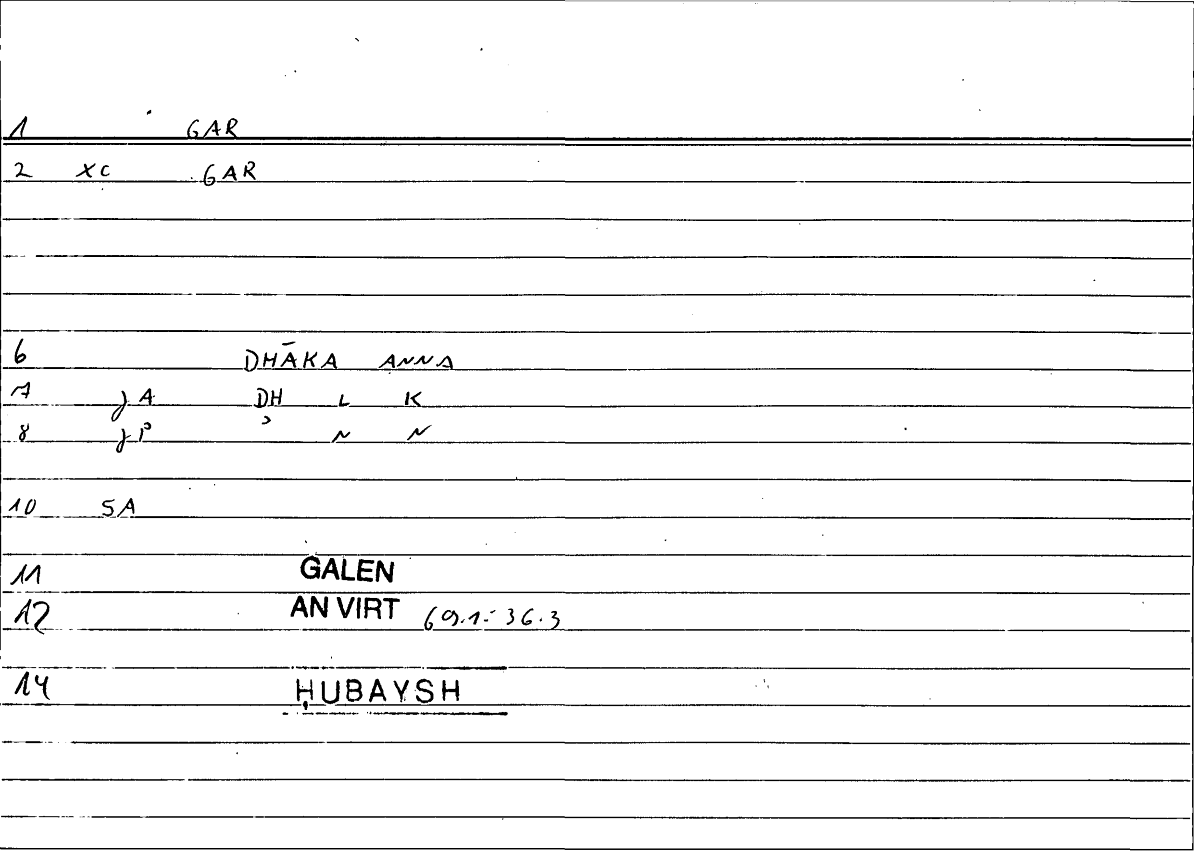 1 GAR
2 XC GAR
6 DHĀKA ANNA
7 jA DH L K
8 jP ʾ N N
10 SA
11 GALEN
12 AN VIRT 69.1- 36.3
14 ḤUBAYSH